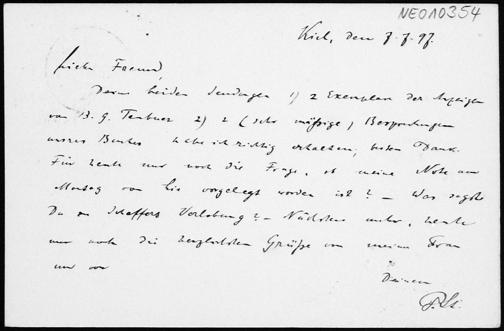 NEO10354
Kiel, den 7.7.97.
Lieber Freund,
Deine beiden Sendungen 1) 2 Exemplare der Anzeigen
von B. G. Teubner 2) 2 (sehr mäßige) Besprechungen
unseres Buches habe ich richtig erhalten, besten Dank.
Für heute nur noch die Frage, ob meine Note am
Montag von vorgelegt worden ist? – Was sagst
Du zu Scheffers Verlobung? – Nächstens mehr, heute
nur noch die herzlichsten Grüße von meiner Frau
und von
Deinem
P. St.